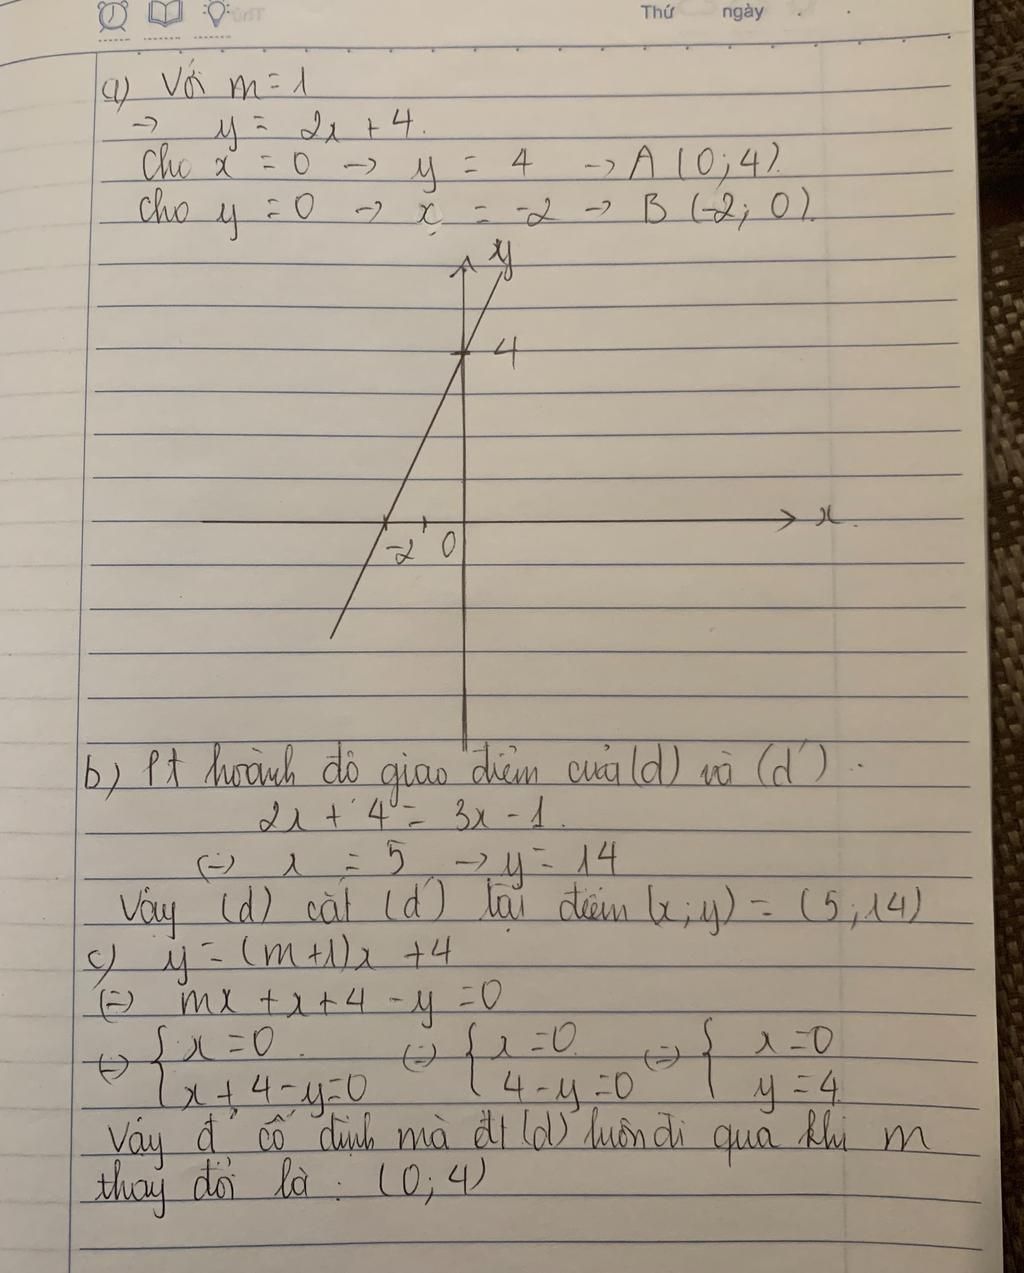 Thứ ngày
a) Với m = 1
→ y = 2x + 4.
Cho x = 0 → y = 4 → A (0; 4).
Cho y = 0 → x = -2 → B (-2; 0).
y
4
x
-2 0
b) Pt hoành độ giao điểm của (d) và (d')
2x + 4 = 3x - 1.
(=) x = 5 → y = 14
Vậy (d) cắt (d') tại điểm (x; y) = (5; 14)
c) y = (m+1)x + 4
(=) mx + x + 4 - y = 0
(=) { x = 0 (=) { x = 0 (=) { x = 0
x + 4 - y = 0 4 - y = 0 y = 4
Vậy đ' cố định mà đt (d) luôn đi qua khi m
thay đổi là : (0; 4)